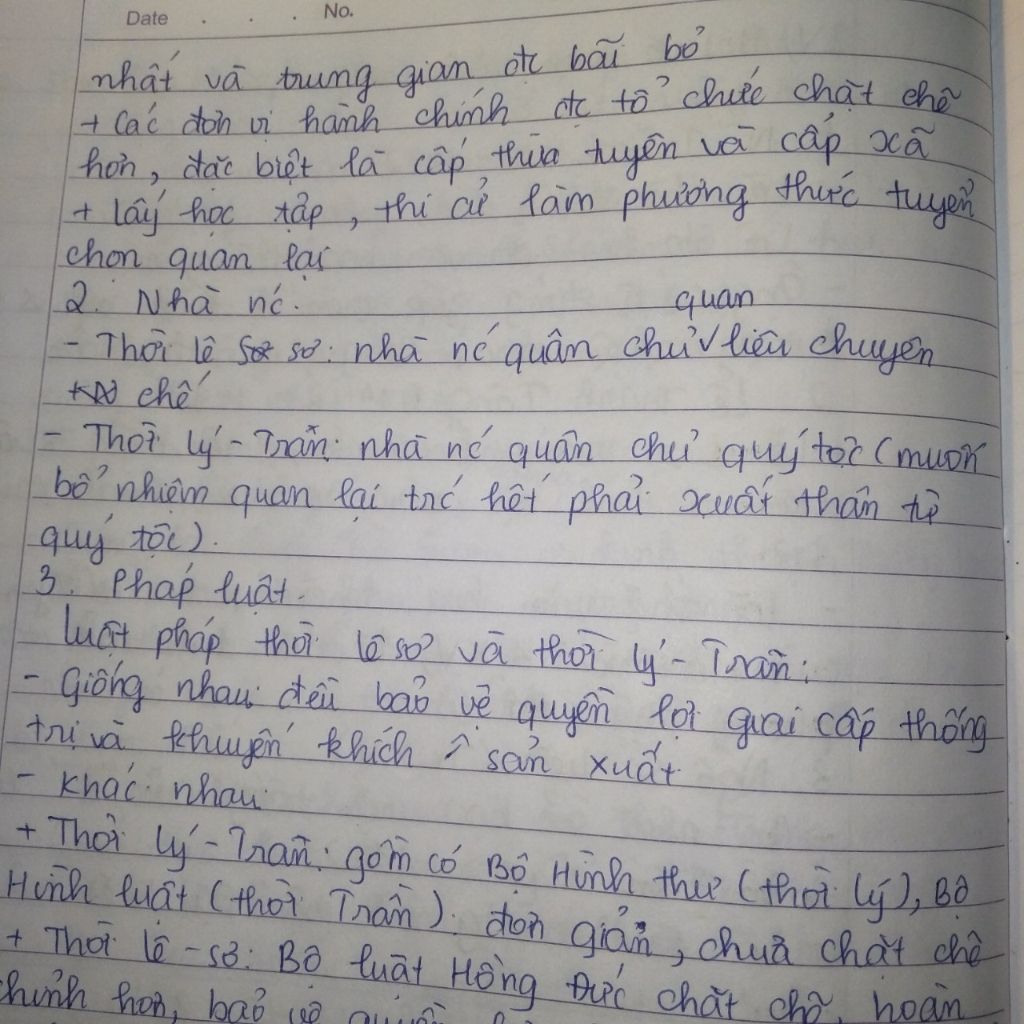 Date . . . No.
nhất và trung gian đc bãi bỏ
+ Các đơn vị hành chính đc tổ chức chặt chẽ
hơn, đặc biệt là cấp thừa tuyên và cấp xã
+ lấy học tập, thi cử làm phương thức tuyển
chọn quan lại
2. Nhà nć.
quan
- Thời lê sơ: nhà nć quân chủ √ liêu chuyên
chế
- Thời lý - Trần: nhà nć quân chủ quý tộc (muốn
bổ nhiệm quan lại trć hết phải xuất thân từ
quý tộc).
3. Pháp luật.
luật pháp thời lê sơ và thời lý - Trần:
- Giống nhau: đều bảo vệ quyền lợi giai cấp thống
trị và khuyến khích sản xuất
- Khác nhau:
+ Thời lý - Trần: gồm có Bộ Hình thư (thời lý), Bộ
Hình luật (thời Trần): đơn giản, chưa chặt chẽ
+ Thời lê - sơ: Bộ luật Hồng Đức chặt chẽ, hoàn
chỉnh hơn, bảo vệ quyền